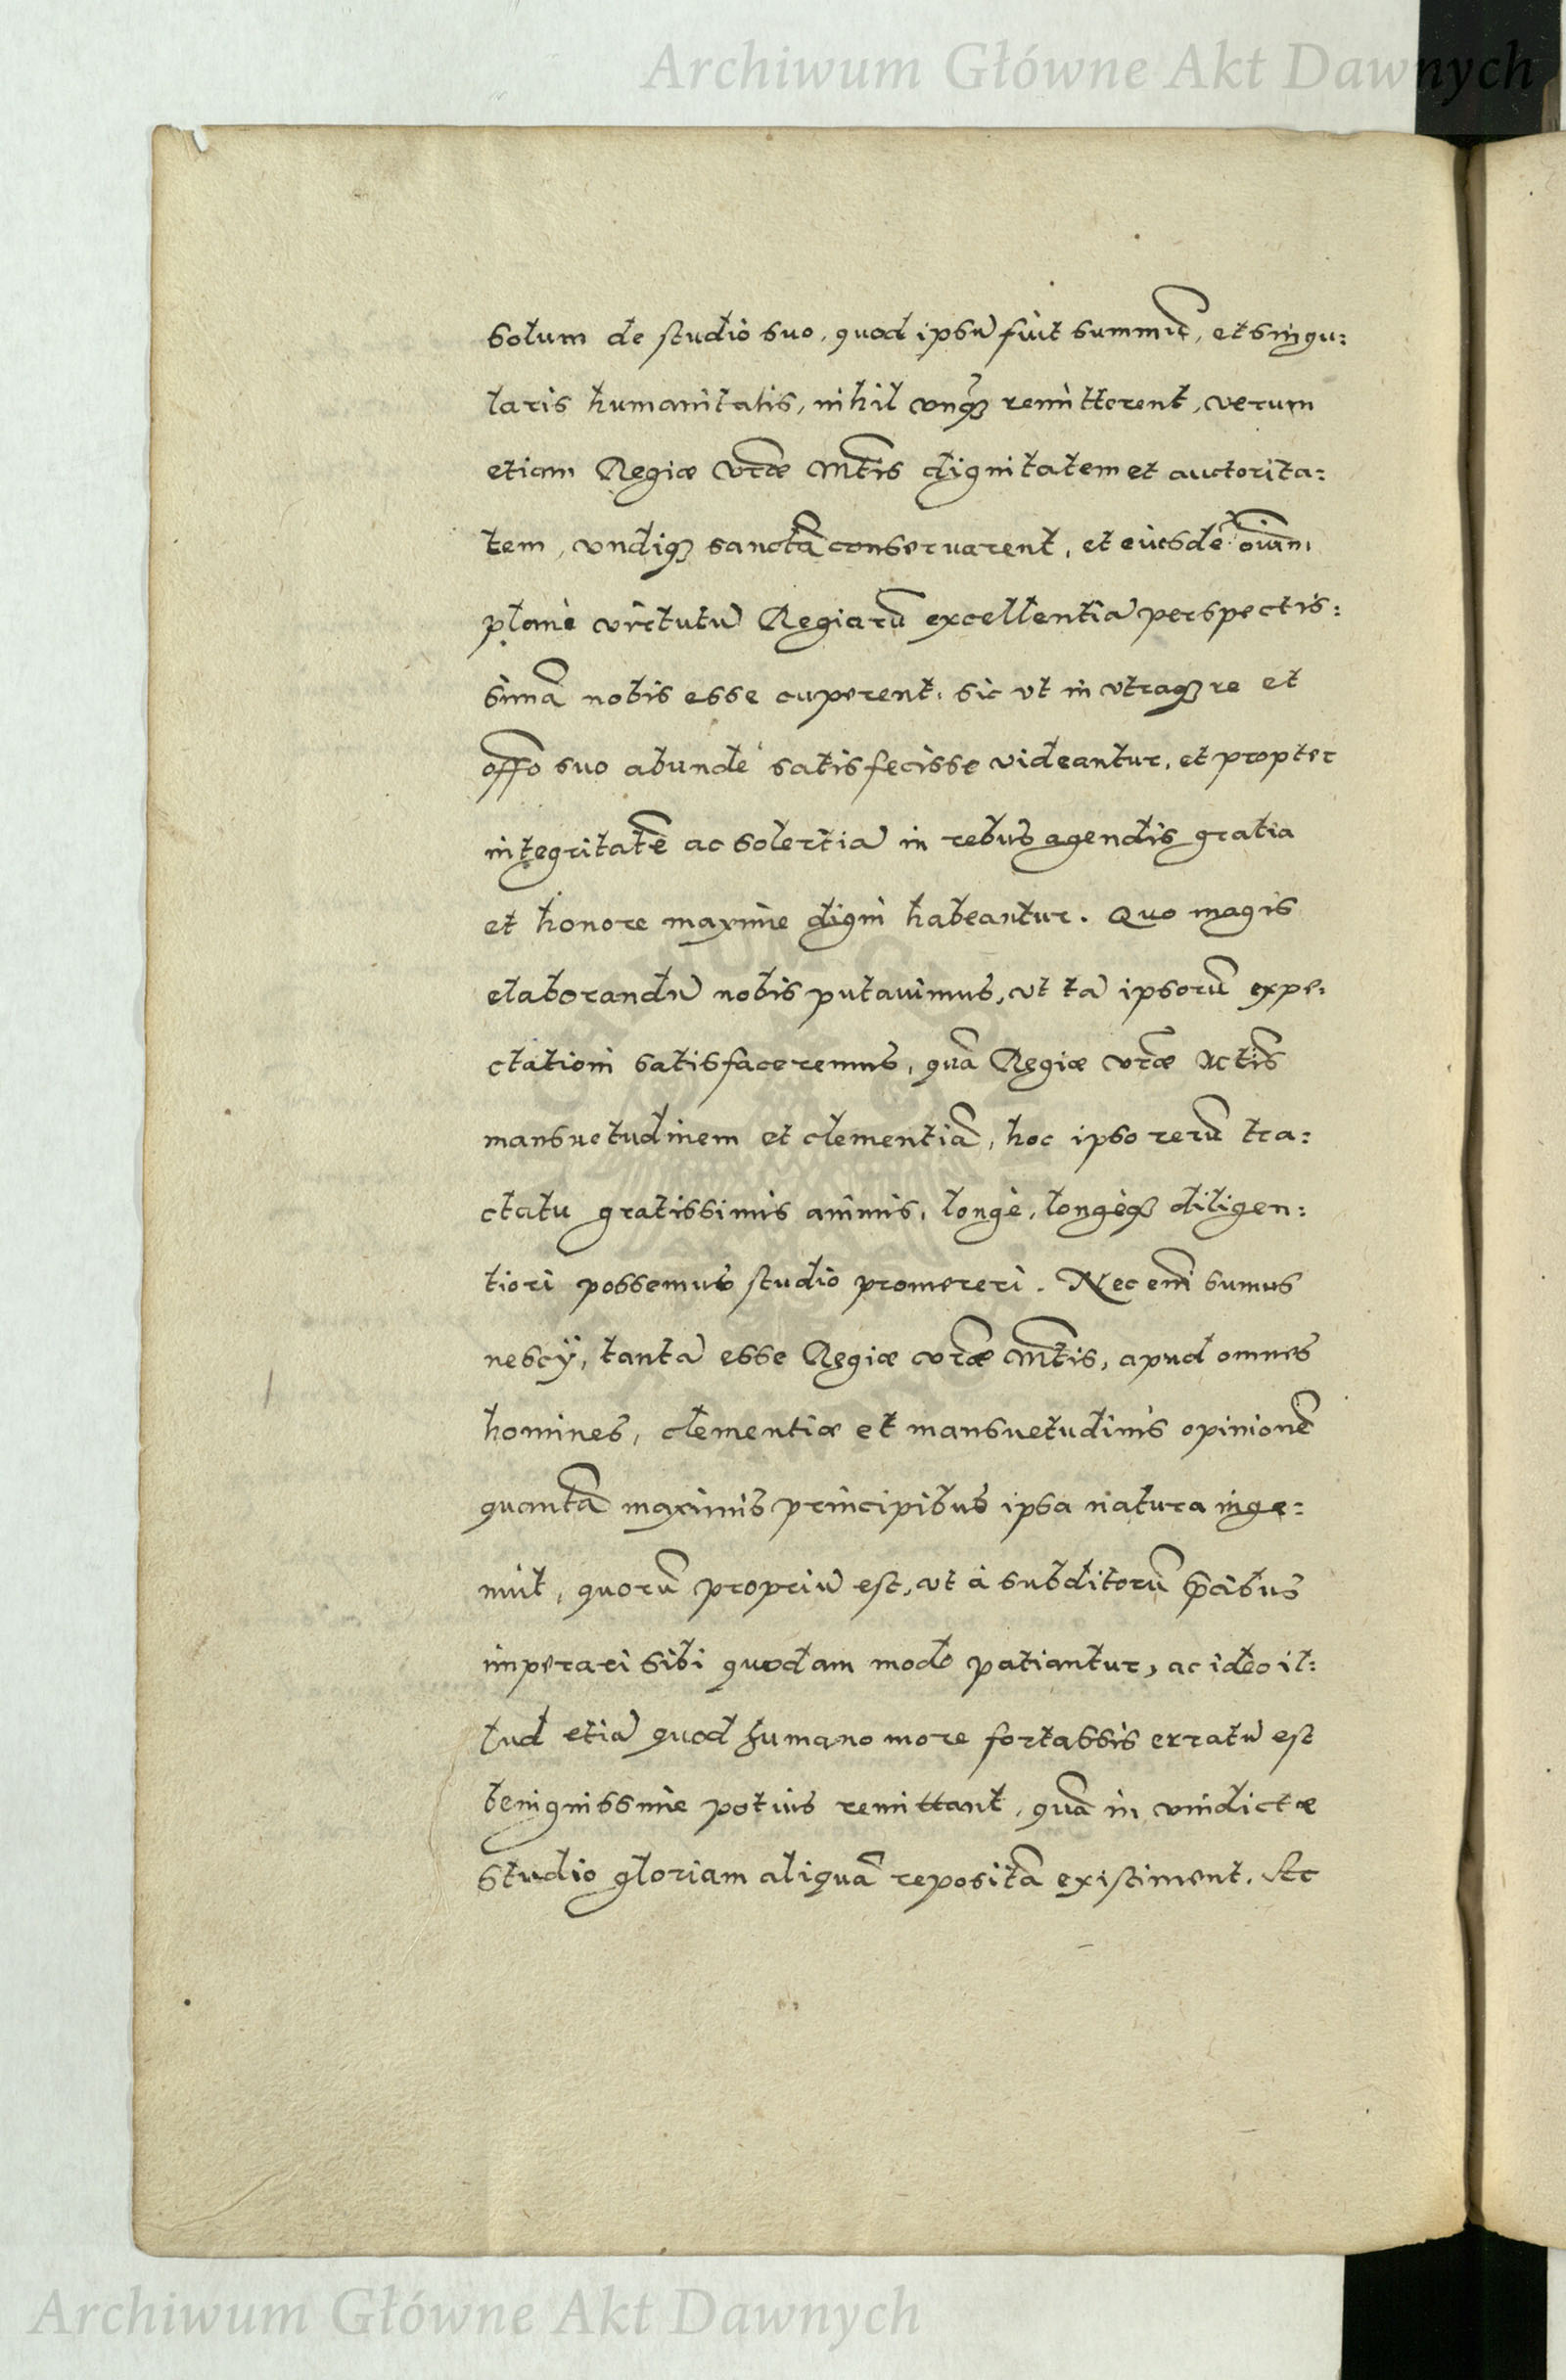 Archiwum Główne Akt Dawnych
solum de studio suo, quod ipsũ fuit summũ, et singu:
laris humanitatis, nihil vnq̃ꝫ remitterent, verum
etiam Regiæ vr̃æ Mt̃is dignitatem et auctorita:
tem, vndiqꝫ sanctã conseruarent, et eiusdẽ oĩum
planè virtutũ Regiarũ excellentiã perspectis:
simã nobis esse cuperent. sic vt in vtraqꝫ re et
off̃o suo abundè satisfecisse videantur, et propter
integritatẽ ac solertiã in rebus agendis gratia
et honore maxime digni habeantur. Quo magis
elaborandũ nobis putauimus, vt tã ipsorũ expe:
ctationi satisfaceremus, quã Regiæ vr̃æ Mt̃is
mansuetudinem et clementiã, hoc ipso rerũ tra:
ctatu gratissimis animis, longè, longèqꝫ diligen:
tiori possemus studio promereri. Nec em̃ sumus
nescÿ, tantã esse Regiæ vr̃æ Mt̃is, apud omnes
homines, clementiæ et mansuetudinis opinionẽ
quantã maximis principibus ipsa natura inge:
nuit, quorũ propriũ est, vt à subditorũ p̃cibus
imperari sibi quodam modo patiantur, ac ideo il:
lud etiã quod humano more fortassis erratũ est
benignissime potius remittant, quã in vindictæ
studio gloriam aliquã repositã existiment. Etc
Archiwum Główne Akt Dawnych